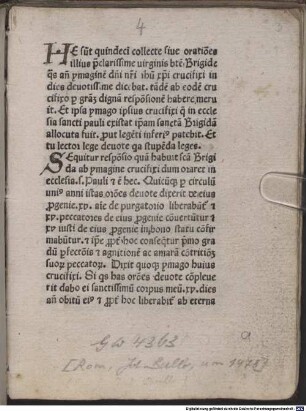 4
HE sūt quindecī collecte siue oratiões
illius p̄clarissime virginis bt̄e. Brigide
qs̄ añ ymaginē dn̄i nr̄i ihū xp̄i crucifixi in
dies deuotissime dic̄bat. tādē ab eodē cru
cifixo p grāz dignā respōsionē habere meru
it. Et ipsa ymago ipsius crucifixi q̄ in eccle
sia sancti pauli existat ip̄am sanctā Brigidā
allocuta fuit. put legēti inferiꝰ patebit. Et
tu lector lege deuote qa stupēda leges.
SEquitur respōsio quā habuit scā Brigi
da ab ymagine crucifixi dum oraret in
ecclesia .s. Pauli ⁊ ē hec. Quicūqꝫ p circulū
vniꝰ anni istas orōēs deuote dixerit v̄ eius
ꝓgenie .xv. aīe de purgatorio liberabūt᷑ ⁊
xv. peccatores de eius ꝓgenie cōuertūtur ⁊
xv iusti de eius ꝓgenie in bono statu cōfir
mabūtur. ⁊ ip̄e ꝓpt̄ hoc conseq̄tur p̄mo gra
dū ꝑfectōis ⁊ agnitionē ac amarā cōtritiōꝫ
suoꝝ peccatoꝝ. Dixit quoqꝫ ymago huius
crucifixi. Si qs has orōēs deuote cōpleue
rit dabo ei sanctissimū corpus meū .xv. dies
añ obitū eiꝰ ⁊ ꝓpt̄ hoc liberabit᷑ ab eterna
GW 4363
[Rom, Joh. Bulle, um 1478]